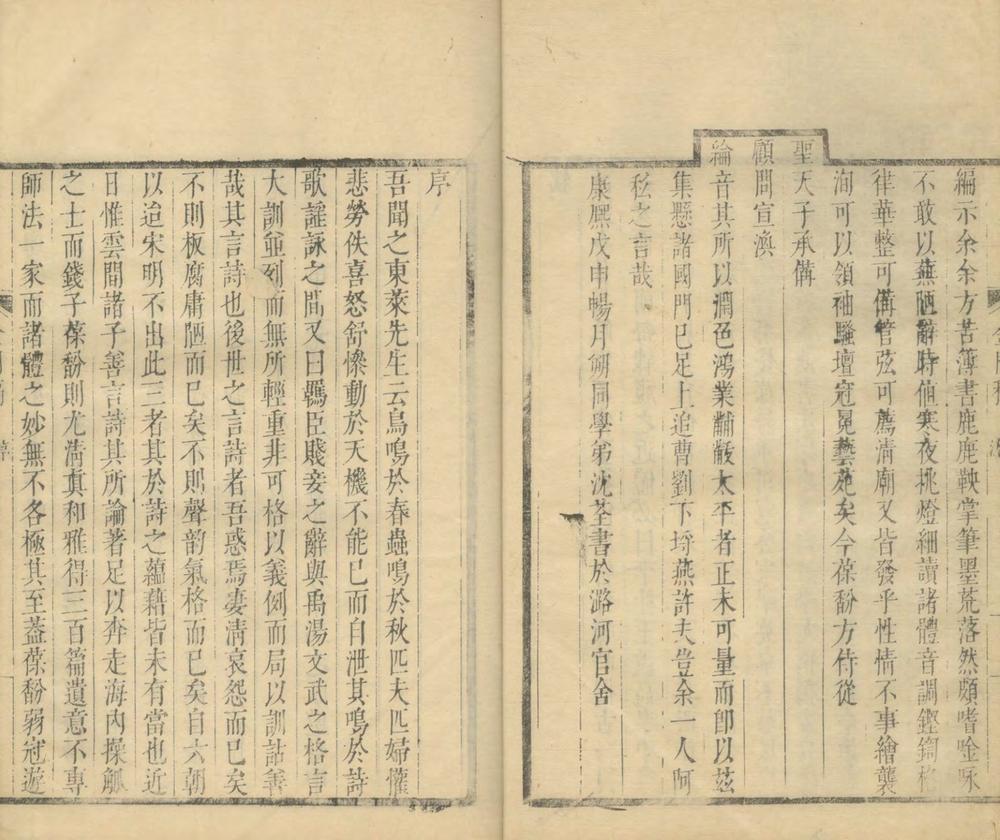 編示余余方苦簿書鹿鹿鞅掌筆墨荒落然頗嗜唫咏
不敢以蕪陋辭時値寒夜挑燈細讀諸體音調鏗鏘格
律華整可備管弦可薦淸廟又皆發乎性情不事繪襲
洵可以領袖騷壇冠冕藝苑矣今葆馚方侍從
聖天子承備
顧問宣渙
綸音其所以潤色鴻業黼黻太平者正未可量而卽以茲
集懸諸國門已足上追曹劉下埒燕許夫豈余一人阿
私之言哉
康熈戊申暢月朔同學弟沈荃書於潞河官舍
序
吾聞之東萊先生云鳥鳴於春蟲鳴於秋匹夫匹婦懽
悲勞佚喜怒舒慘動於天機不能已而自泄其鳴於詩
歌謠詠之間又曰羈臣賤妾之辭與禹湯文武之格言
大訓並列而無所輕重非可格以義例而局以訓詁善
哉其言詩也後世之言詩者吾惑焉凄淸哀怨而已矣
不則板腐庸陋而已矣不則聲韵氣格而已矣自六朝
以迨宋明不出此三者其於詩之蘊藉皆未有當也近
日惟雲間諸子善言詩其所論著足以奔走海內操觚
之士而錢子葆馚則尤淸眞和雅得三百篇遺意不專
師法一家而諸體之妙無不各極其至葢葆馚弱冠遊